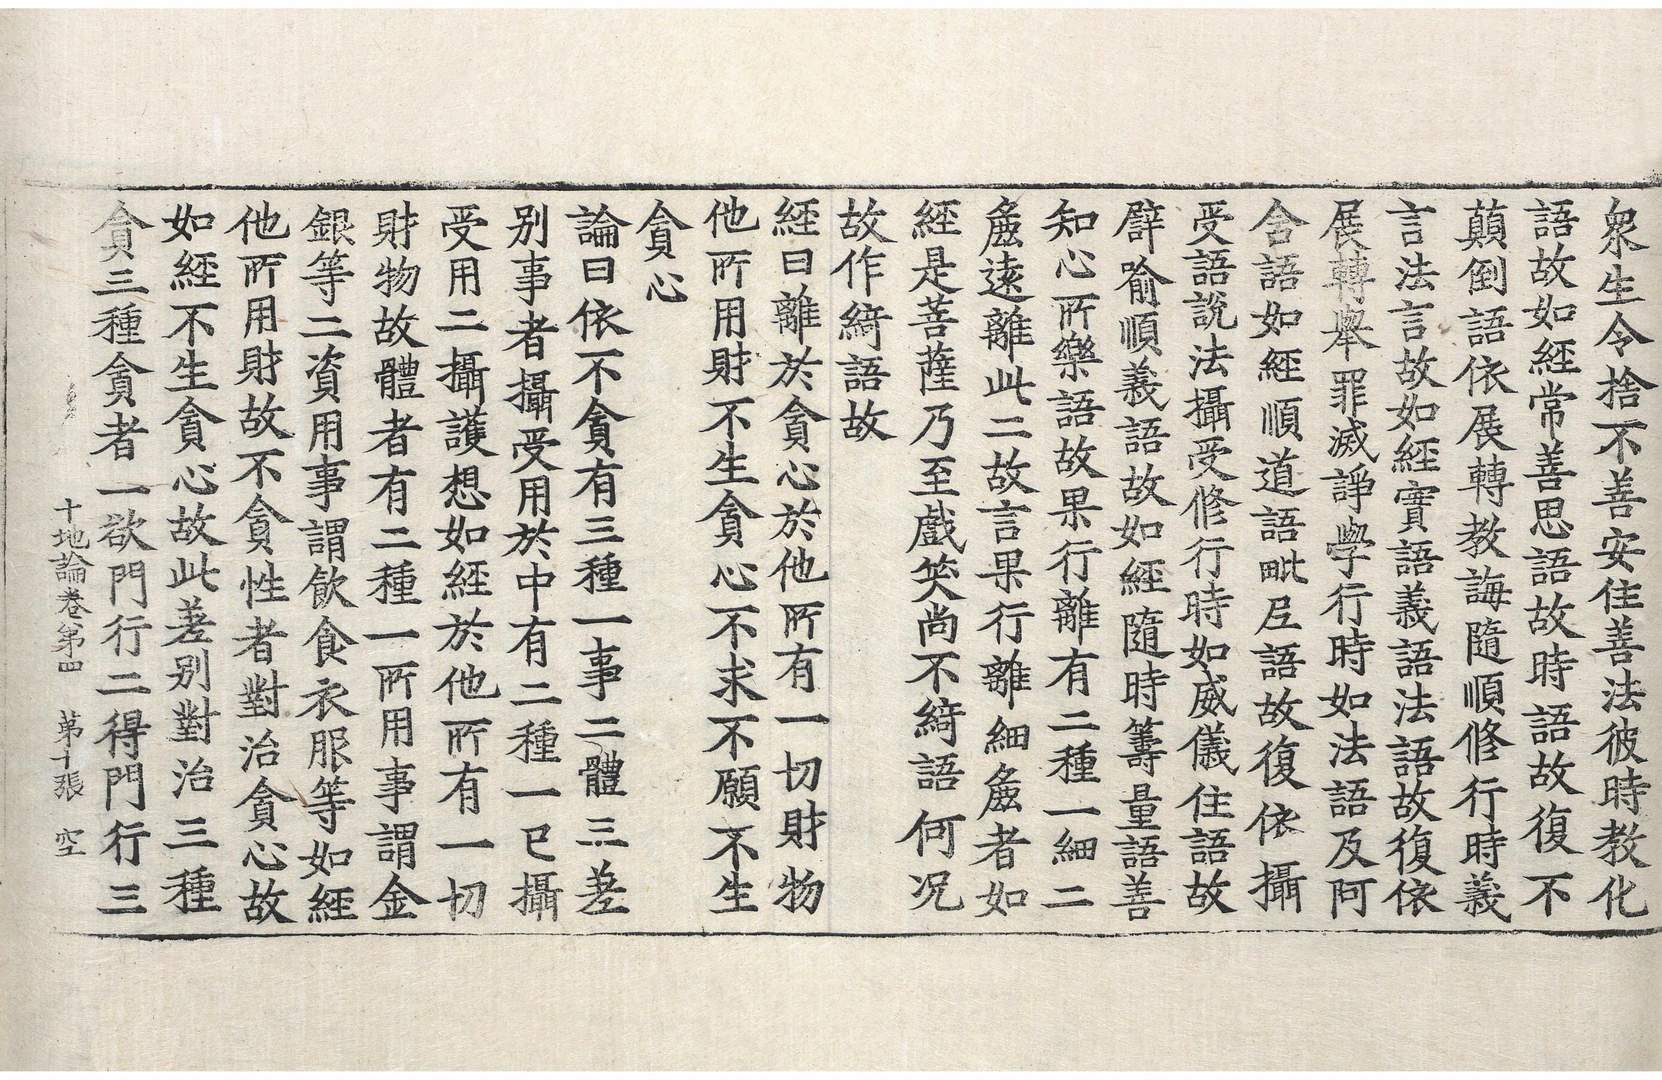 衆生令捨不善安住善法彼時教化
語故如經常善思語故時語故復不
顛倒語依展轉教誨隨順修行時義
言法言故如經實語義語法語故復依
展轉舉罪滅諍學行時如法語及阿
含語如經順道語毗尼語故復依攝
受語說法攝受修行時如威儀住語故
辟喻順義語故如經隨時籌量語善
知心所樂語故果行離有二種一細二
麁遠離此二故言果行離細麁者如
經是菩薩乃至戲笑尚不綺語何况
故作綺語故
經曰離於貪心於他所有一切財物
他所用財不生貪心不求不願不生
貪心
論曰依不貪有三種一事二體三差
别事者攝受用於中有二種一已攝
受用二攝護想如經於他所有一切
財物故體者有二種一所用事謂金
銀等二資用事謂飲食衣服等如經
他所用財故不貪性者對治貪心故
如經不生貪心故此差别對治三種
貪三種貪者一欲門行二得門行三
十地論卷第四 第十張 空